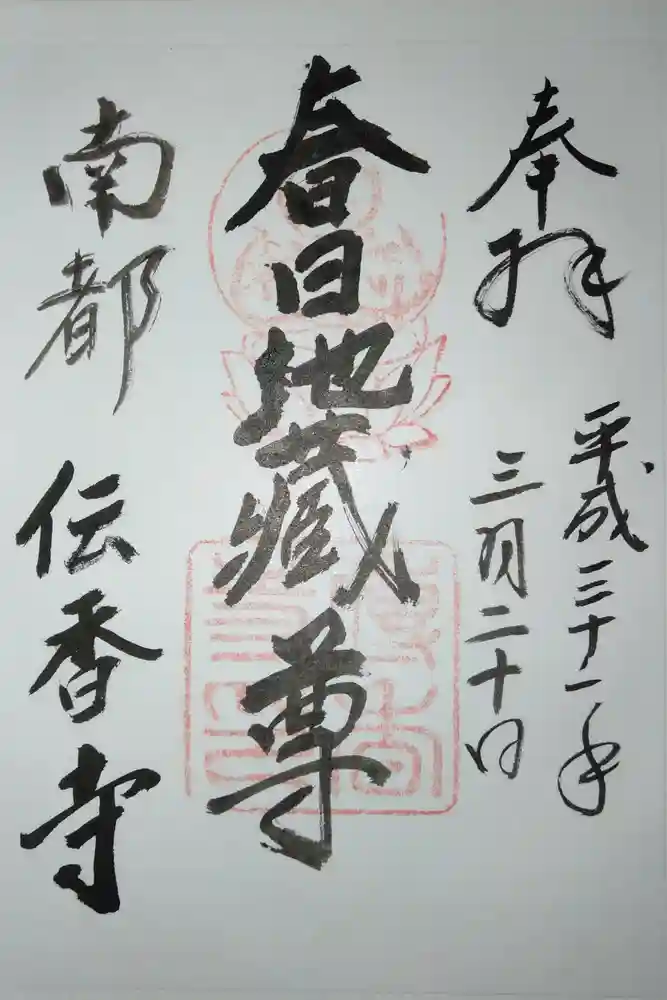 奉拝
平成三十一年
三月二十日
春日地蔵尊
南都 伝香寺